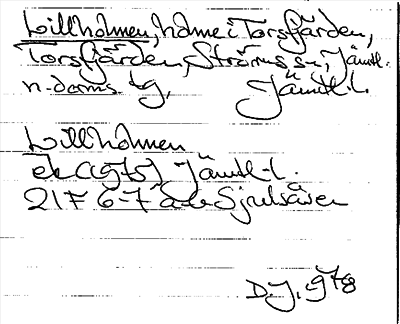 Lillholmen, holme i Torsfjärden,
Torsfjärden, Ströms sn, Jämtl.
n. doms lg, Jämtl. l.
Lillholmen
ek (1975) Jämtl. l.
21F 6-7 a-b Sjulsåsen
D.J. 978